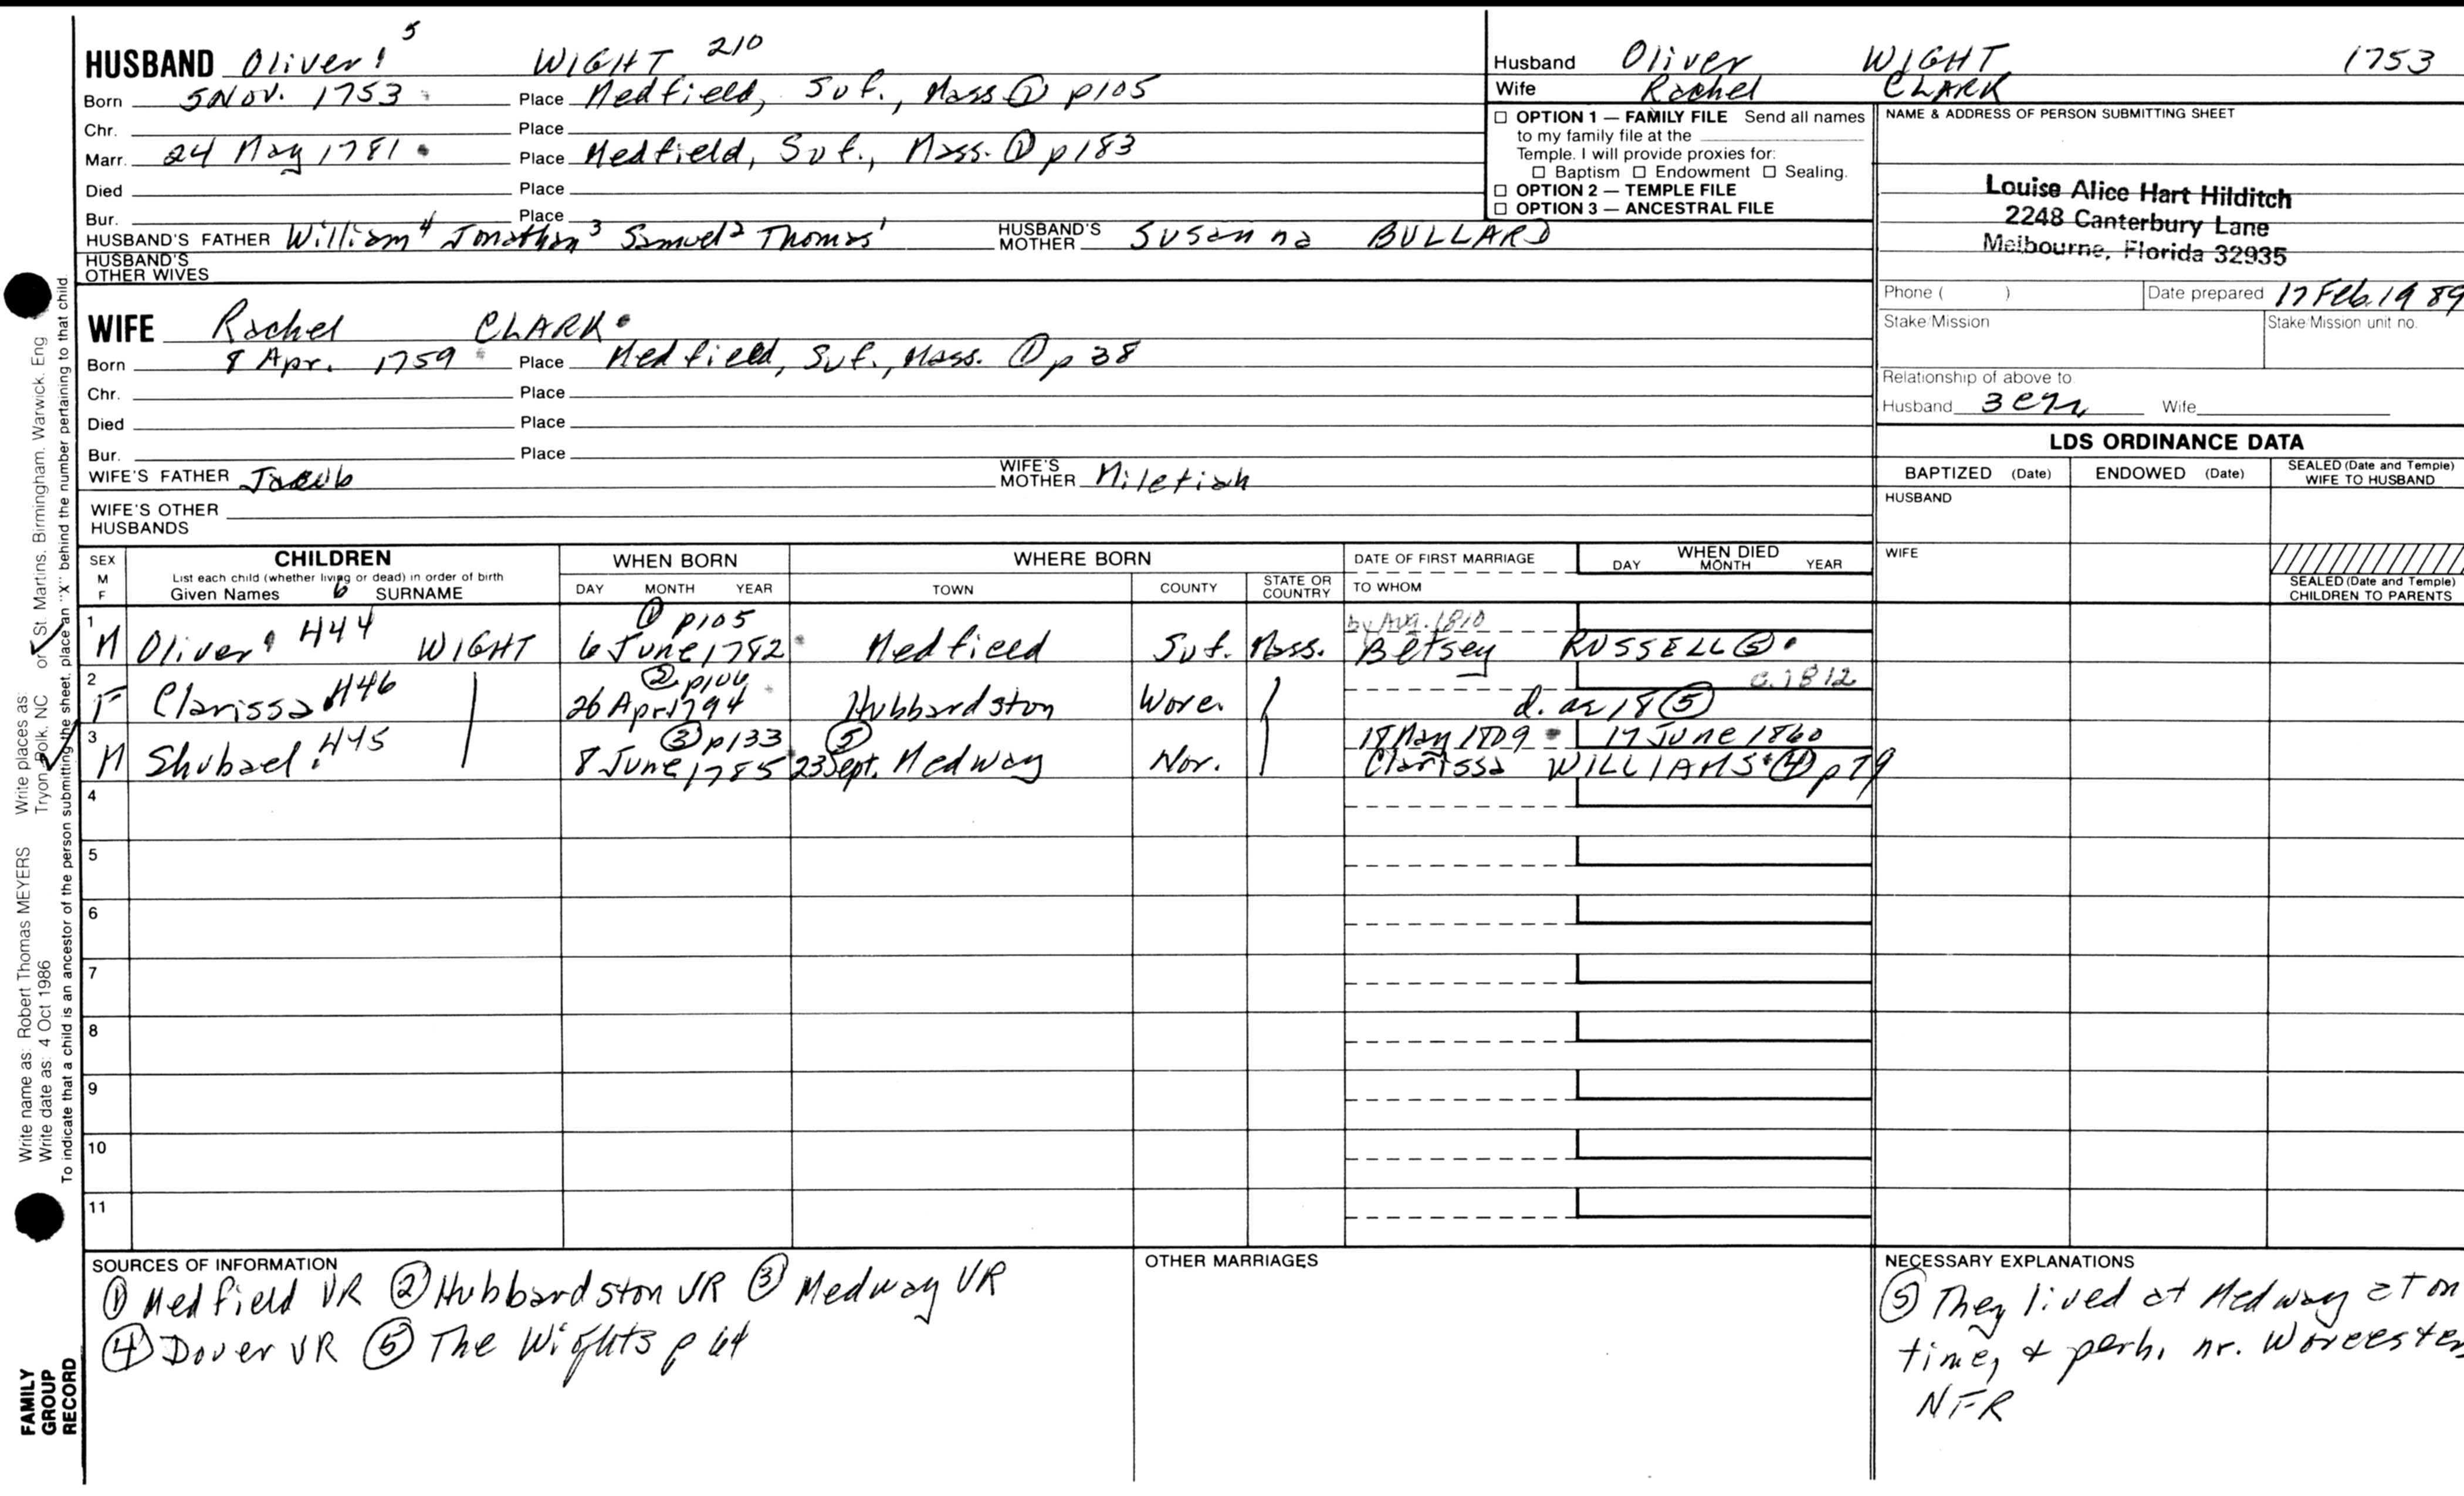 HUSBAND Oliver 5 WIGHT 210
Born 5 Nov. 1753 Place Medfield, Suf., Mass ① p105
Chr. Place
Marr. 24 May 1781 Place Medfield, Suf., Mass. ① p183
Died Place
Bur. Place
HUSBAND'S FATHER William4 Jonathan3 Samuel2 Thomas1 HUSBAND'S MOTHER Susanna BULLARD
HUSBAND'S OTHER WIVES
WIFE Rachel CLARK
Born 8 Apr. 1759 Place Medfield, Suf., Mass. ① p38
Chr. Place
Died Place
Bur. Place
WIFE'S FATHER Jacob WIFE'S MOTHER Miletiah
WIFE'S OTHER HUSBANDS
Husband Oliver WIGHT 1753
Wife Rachel CLARK
☐ OPTION 1 — FAMILY FILE Send all names
to my family file at the
Temple. I will provide proxies for:
☐ Baptism ☐ Endowment ☐ Sealing.
☐ OPTION 2 — TEMPLE FILE
☐ OPTION 3 — ANCESTRAL FILE
NAME & ADDRESS OF PERSON SUBMITTING SHEET
Louise Alice Hart Hilditch
2248 Canterbury Lane
Melbourne, Florida 32935
Phone ( ) Date prepared 17 Feb. 1989
Stake/Mission Stake/Mission unit no.
Relationship of above to
Husband Wife
LDS ORDINANCE DATA
BAPTIZED (Date) ENDOWED (Date) SEALED (Date and Temple) WIFE TO HUSBAND
HUSBAND
WIFE
SEALED (Date and Temple) CHILDREN TO PARENTS
SEX M F
CHILDREN
List each child (whether living or dead) in order of birth
Given Names 6 SURNAME
WHEN BORN
DAY MONTH YEAR
WHERE BORN
TOWN COUNTY STATE OR COUNTRY
DATE OF FIRST MARRIAGE
TO WHOM
WHEN DIED
DAY MONTH YEAR
1 M Oliver 444 WIGHT ① p105 6 June 1782 Medfield Suf. Mass. by Aug. 1810 Betsey RUSSELL ⑤
2 F Clarissa 446 ② p106 26 Apr 1794 Hubbardston Worc. c. 1812 d. ae 18 ⑤
3 M Shubael 445 ③ p133 8 June 1785 ⑤ 23 Sept. Medway Nor. 18 May 1809 17 June 1860 Clarissa WILLIAMS ④ p79
4
5
6
7
8
9
10
11
SOURCES OF INFORMATION
① Medfield VR ② Hubbardston VR ③ Medway VR
④ Dover VR ⑤ The Wights p 64
OTHER MARRIAGES
NECESSARY EXPLANATIONS
⑤ They lived at Medway at on
time, & perh. nr. Worcester
NFR
Write places as: Tryon, Polk, NC or St. Martins, Birmingham, Warwick, Eng
Write name as: Robert Thomas MEYERS
Write date as: 4 Oct 1986
To indicate that a child is an ancestor of the person submitting the sheet, place an "X" behind the number pertaining to that child.
FAMILY
GROUP
RECORD